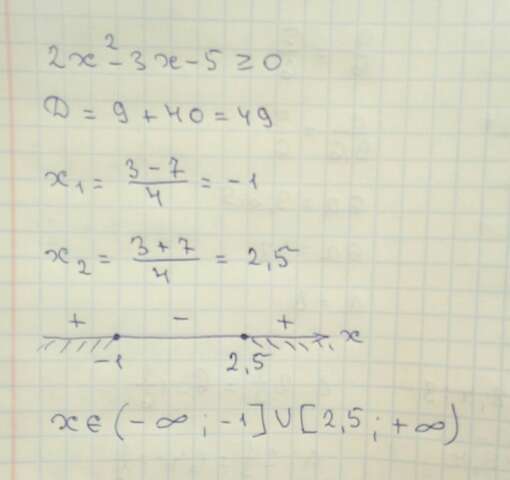 2x² - 3x - 5 ≥ 0
D = 9 + 40 = 49
x₁ = (3 - 7)/4 = -1
x₂ = (3 + 7)/4 = 2,5
+ - +
-1 2,5 x
x ∈ (-∞; -1] ∪ [2,5; +∞)